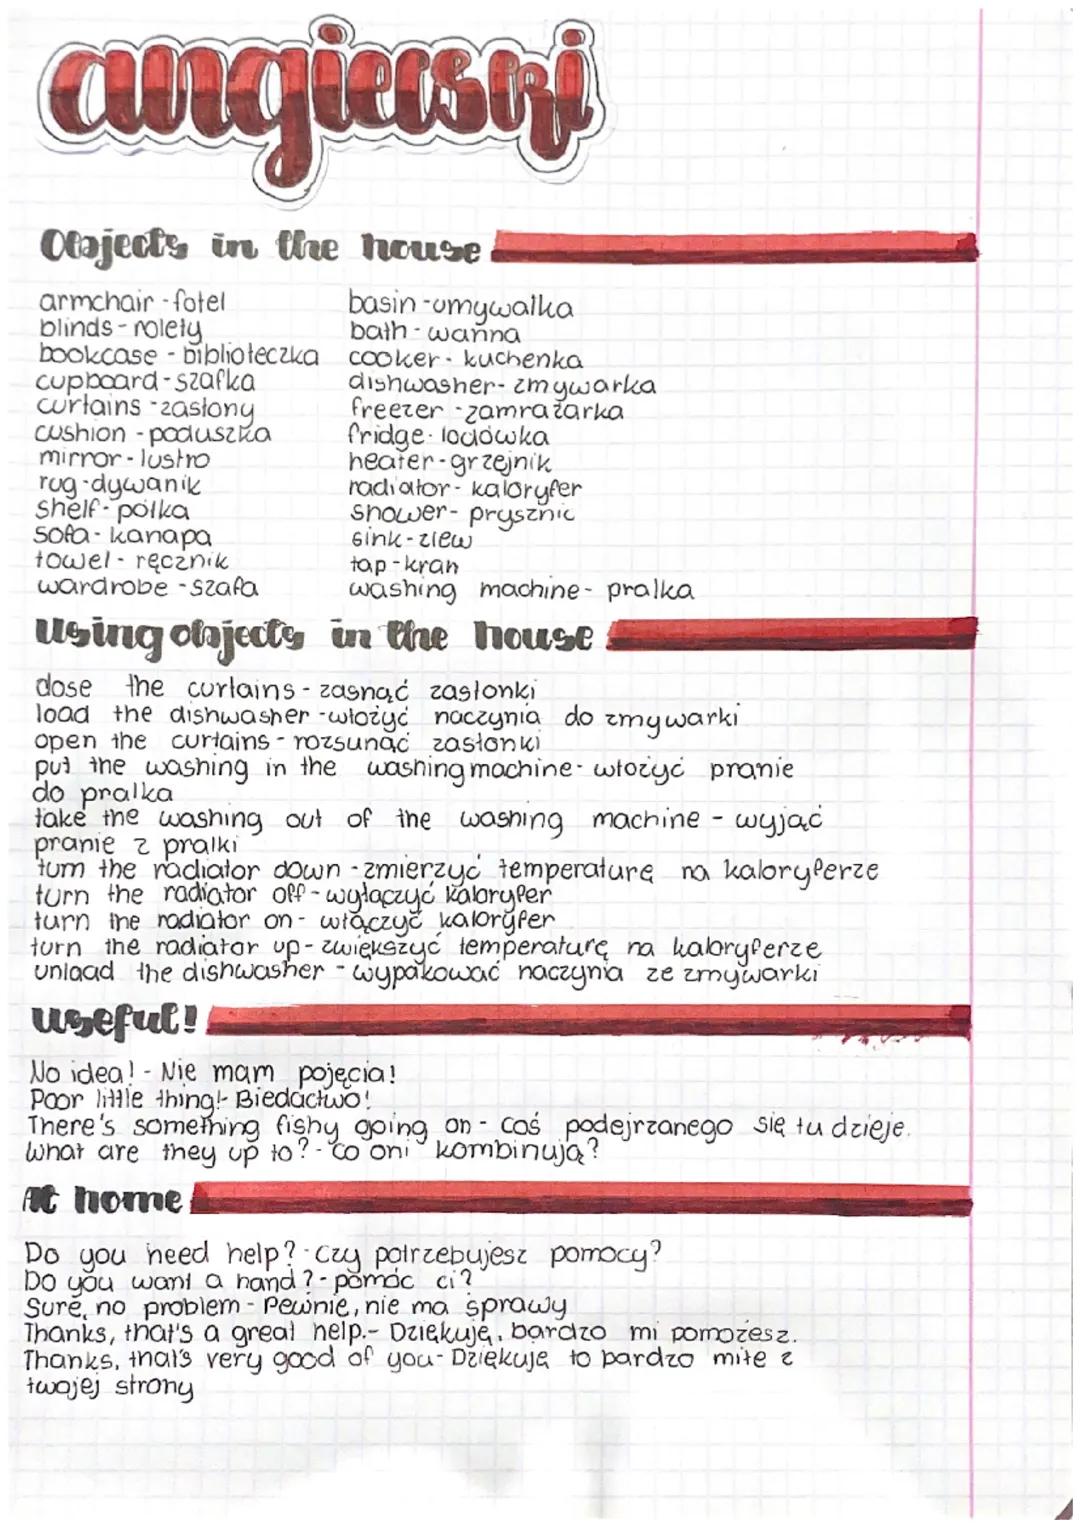 angielski
Objects in the house
armchair - fotel
blinds - rolety
bookcase - biblioteczka
cupboard - szafka
curtains - zasłony
cushion - poduszka
mirror - lustro
rug - dywanik
shelf - półka
sofa - kanapa
towel - ręcznik
wardrobe - szafa
basin - umywalka
bath - wanna
cooker - kuchenka
dishwasher - zmywarka
freezer - zamrażarka
fridge - lodówka
heater - grzejnik
radiator - kaloryfer
shower - prysznic
sink - zlew
tap - kran
washing machine - pralka
Using objects in the house
close the curtains - zasnąć zasłonki
load the dishwasher - włożyć naczynia do zmywarki
open the curtains - rozsunąć zasłonki
put the washing in the washing machine - włożyć pranie
do pralka
take the washing out of the washing machine - wyjąć
pranie z pralki
turn the radiator down - zmierzyć temperaturę na kaloryferze
turn the radiator off - wyłączyć kaloryfer
turn the radiator on - włączyć kaloryfer
turn the radiator up - zwiększyć temperaturę na kaloryferze
unload the dishwasher - wypakować naczynia ze zmywarki
useful!
No idea! - Nie mam pojęcia!
Poor little thing! - Biedactwo!
There's something fishy going on - Coś podejrzanego się tu dzieje.
What are they up to? - Co oni kombinują?
At home
Do you need help? - Czy potrzebujesz pomocy?
Do you want a hand? - pomóc ci?
Sure, no problem - Pewnie, nie ma sprawy
Thanks, that's a great help. - Dziękuję, bardzo mi pomożesz.
Thanks, that's very good of you - Dziękuję to bardzo miłe z
twojej strony